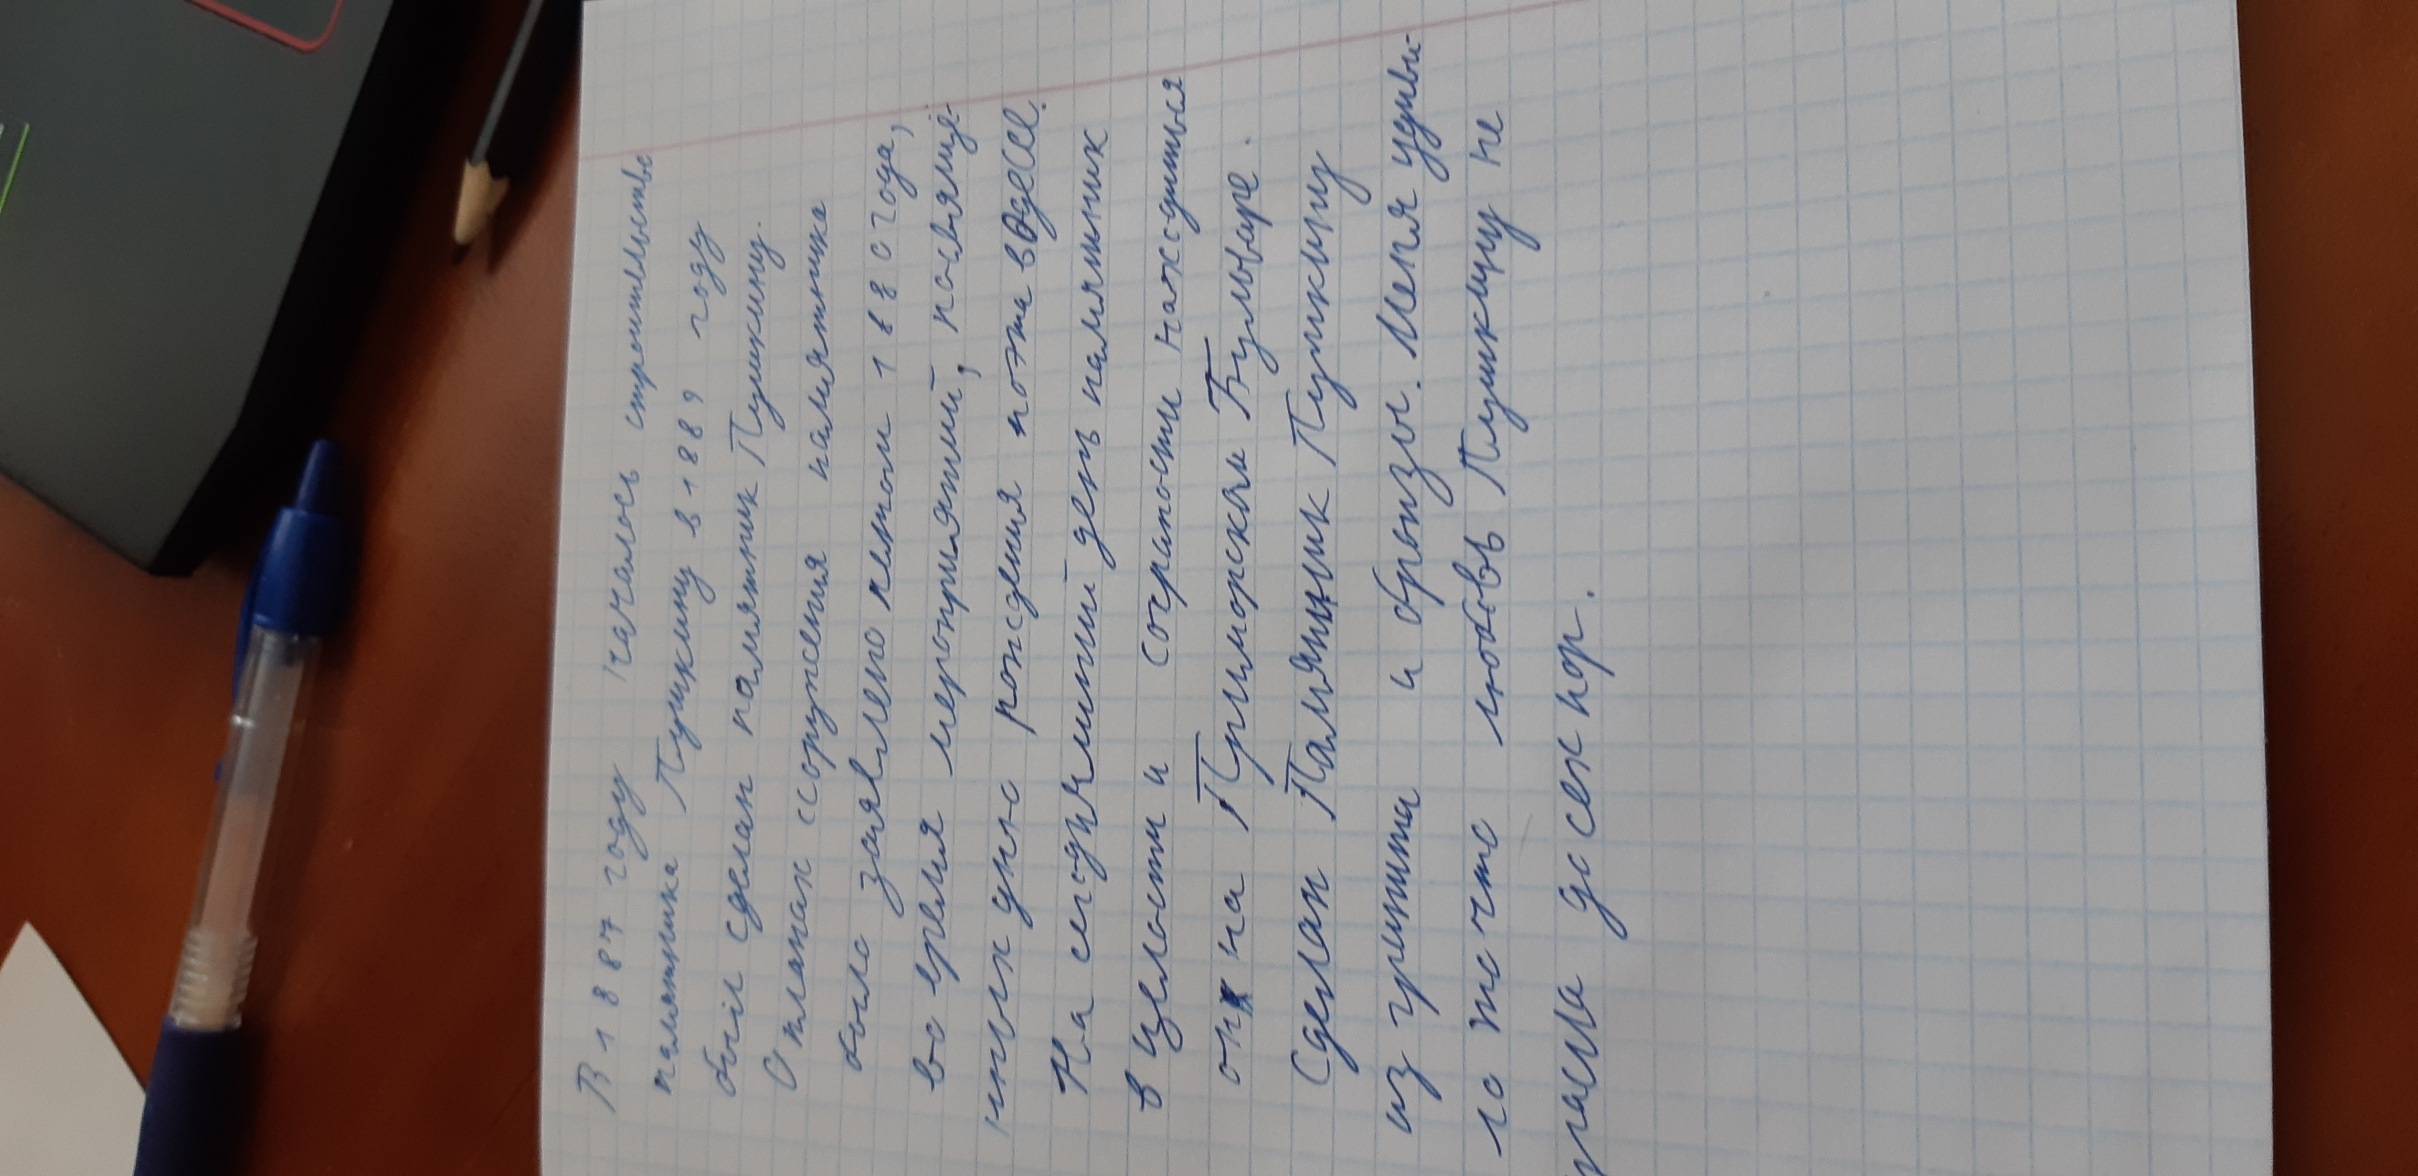 В 1887 году началось строительство
памятника Пушкину в 1889 году
был сделан памятник Пушкину.
О планах сооружения памятника
было заявлено летом 1880 года,
во время мероприятий, посвяще-
нных дню рождения поэта в Одессе.
На сегодняшний день памятник
в целости и сохраности находиться
он на Приморском Бульваре.
Сделан Памятник Пушкину
из гранита и бронзы. Меня удиви-
ло то что любовь Пушкину не
угасла до сех пор.